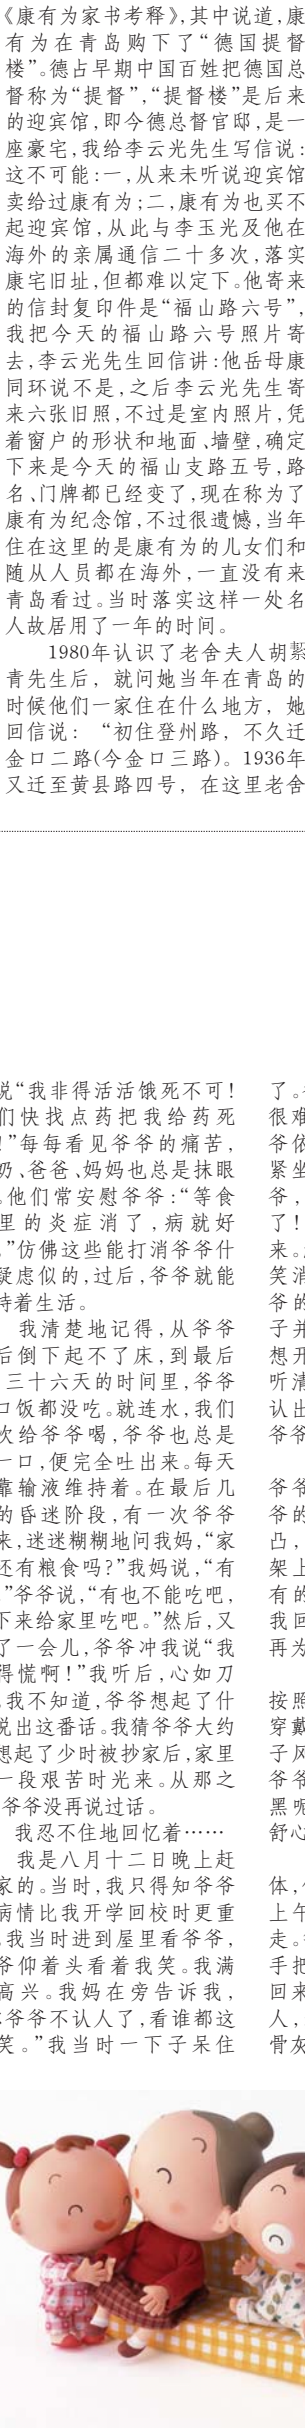 《康有为家书考释》,其中说道,康
有为在青岛购下了“德国提督
楼”。德占早期中国百姓把德国总
督称为“提督”,“提督楼”是后来
的迎宾馆,即今德总督官邸,是一
座豪宅,我给李云光先生写信说:
这不可能:一,从来未听说迎宾馆
卖给过康有为;二,康有为也买不
起迎宾馆,从此与李玉光及他在
海外的亲属通信二十多次,落实
康宅旧址,但都难以定下。他寄来
的信封复印件是“福山路六号”,
我把今天的福山路六号照片寄
去,李云光先生回信讲:他岳母康
同环说不是,之后李云光先生寄
来六张旧照,不过是室内照片,凭
着窗户的形状和地面、墙壁,确定
下来是今天的福山支路五号,路
名、门牌都已经变了,现在称为了
康有为纪念馆,不过很遗憾,当年
住在这里的是康有为的儿女们和
随从人员都在海外,一直没有来
青岛看过。当时落实这样一处名
人故居用了一年的时间。
1980年认识了老舍夫人胡絜
青先生后，就问她当年在青岛的
时候他们一家住在什么地方，她
回信说：“初住登州路，不久迁
金口二路(今金口三路)。1936年
又迁至黄县路四号，在这里老舍
说“我非得活活饿死不可!
们快找点药把我给药死
!”每每看见爷爷的痛苦,
奶、爸爸、妈妈也总是抹眼
。他们常安慰爷爷:“等食
里的炎症消了,病就好
。”仿佛这些能打消爷爷什
疑虑似的,过后,爷爷就能
持着生活。
我清楚地记得,从爷爷
后倒下起不了床,到最后
三十六天的时间里,爷爷
口饭都没吃。就连水,我们
次给爷爷喝,爷爷也总是
一口,便完全吐出来。每天
靠输液维持着。在最后几
的昏迷阶段,有一次爷爷
来,迷迷糊糊地问我妈,“家
还有粮食吗?”我妈说,“有
。”爷爷说,“有也不能吃吧,
下来给家里吃吧。”然后,又
了一会儿,爷爷冲我说“我
得慌啊!”我听后,心如刀
我不知道,爷爷想起了什
说出这番话。我猜爷爷大约
想起了少时被抄家后,家里
一段艰苦时光来。从那之
爷爷没再说过话。
我忍不住地回忆着……
我是八月十二日晚上赶
家的。当时,我只得知爷爷
病情比我开学回校时更重
我当时进到屋里看爷爷,
爷仰着头看着我笑。我满
高兴。我妈在旁告诉我,
爷爷不认人了,看谁都这
笑。”我当时一下子呆住
了。
很难
爷依
紧坐
爷,
了!
来。
笑消
爷的
子并
想开
听清
认出
爷爷
爷爷
爷的
凸,
架上
有的
我回
再为
按照
穿戴
子风
爷爷
黑呢
舒心
体,
上午
走。
手把
回来
人,
骨灰